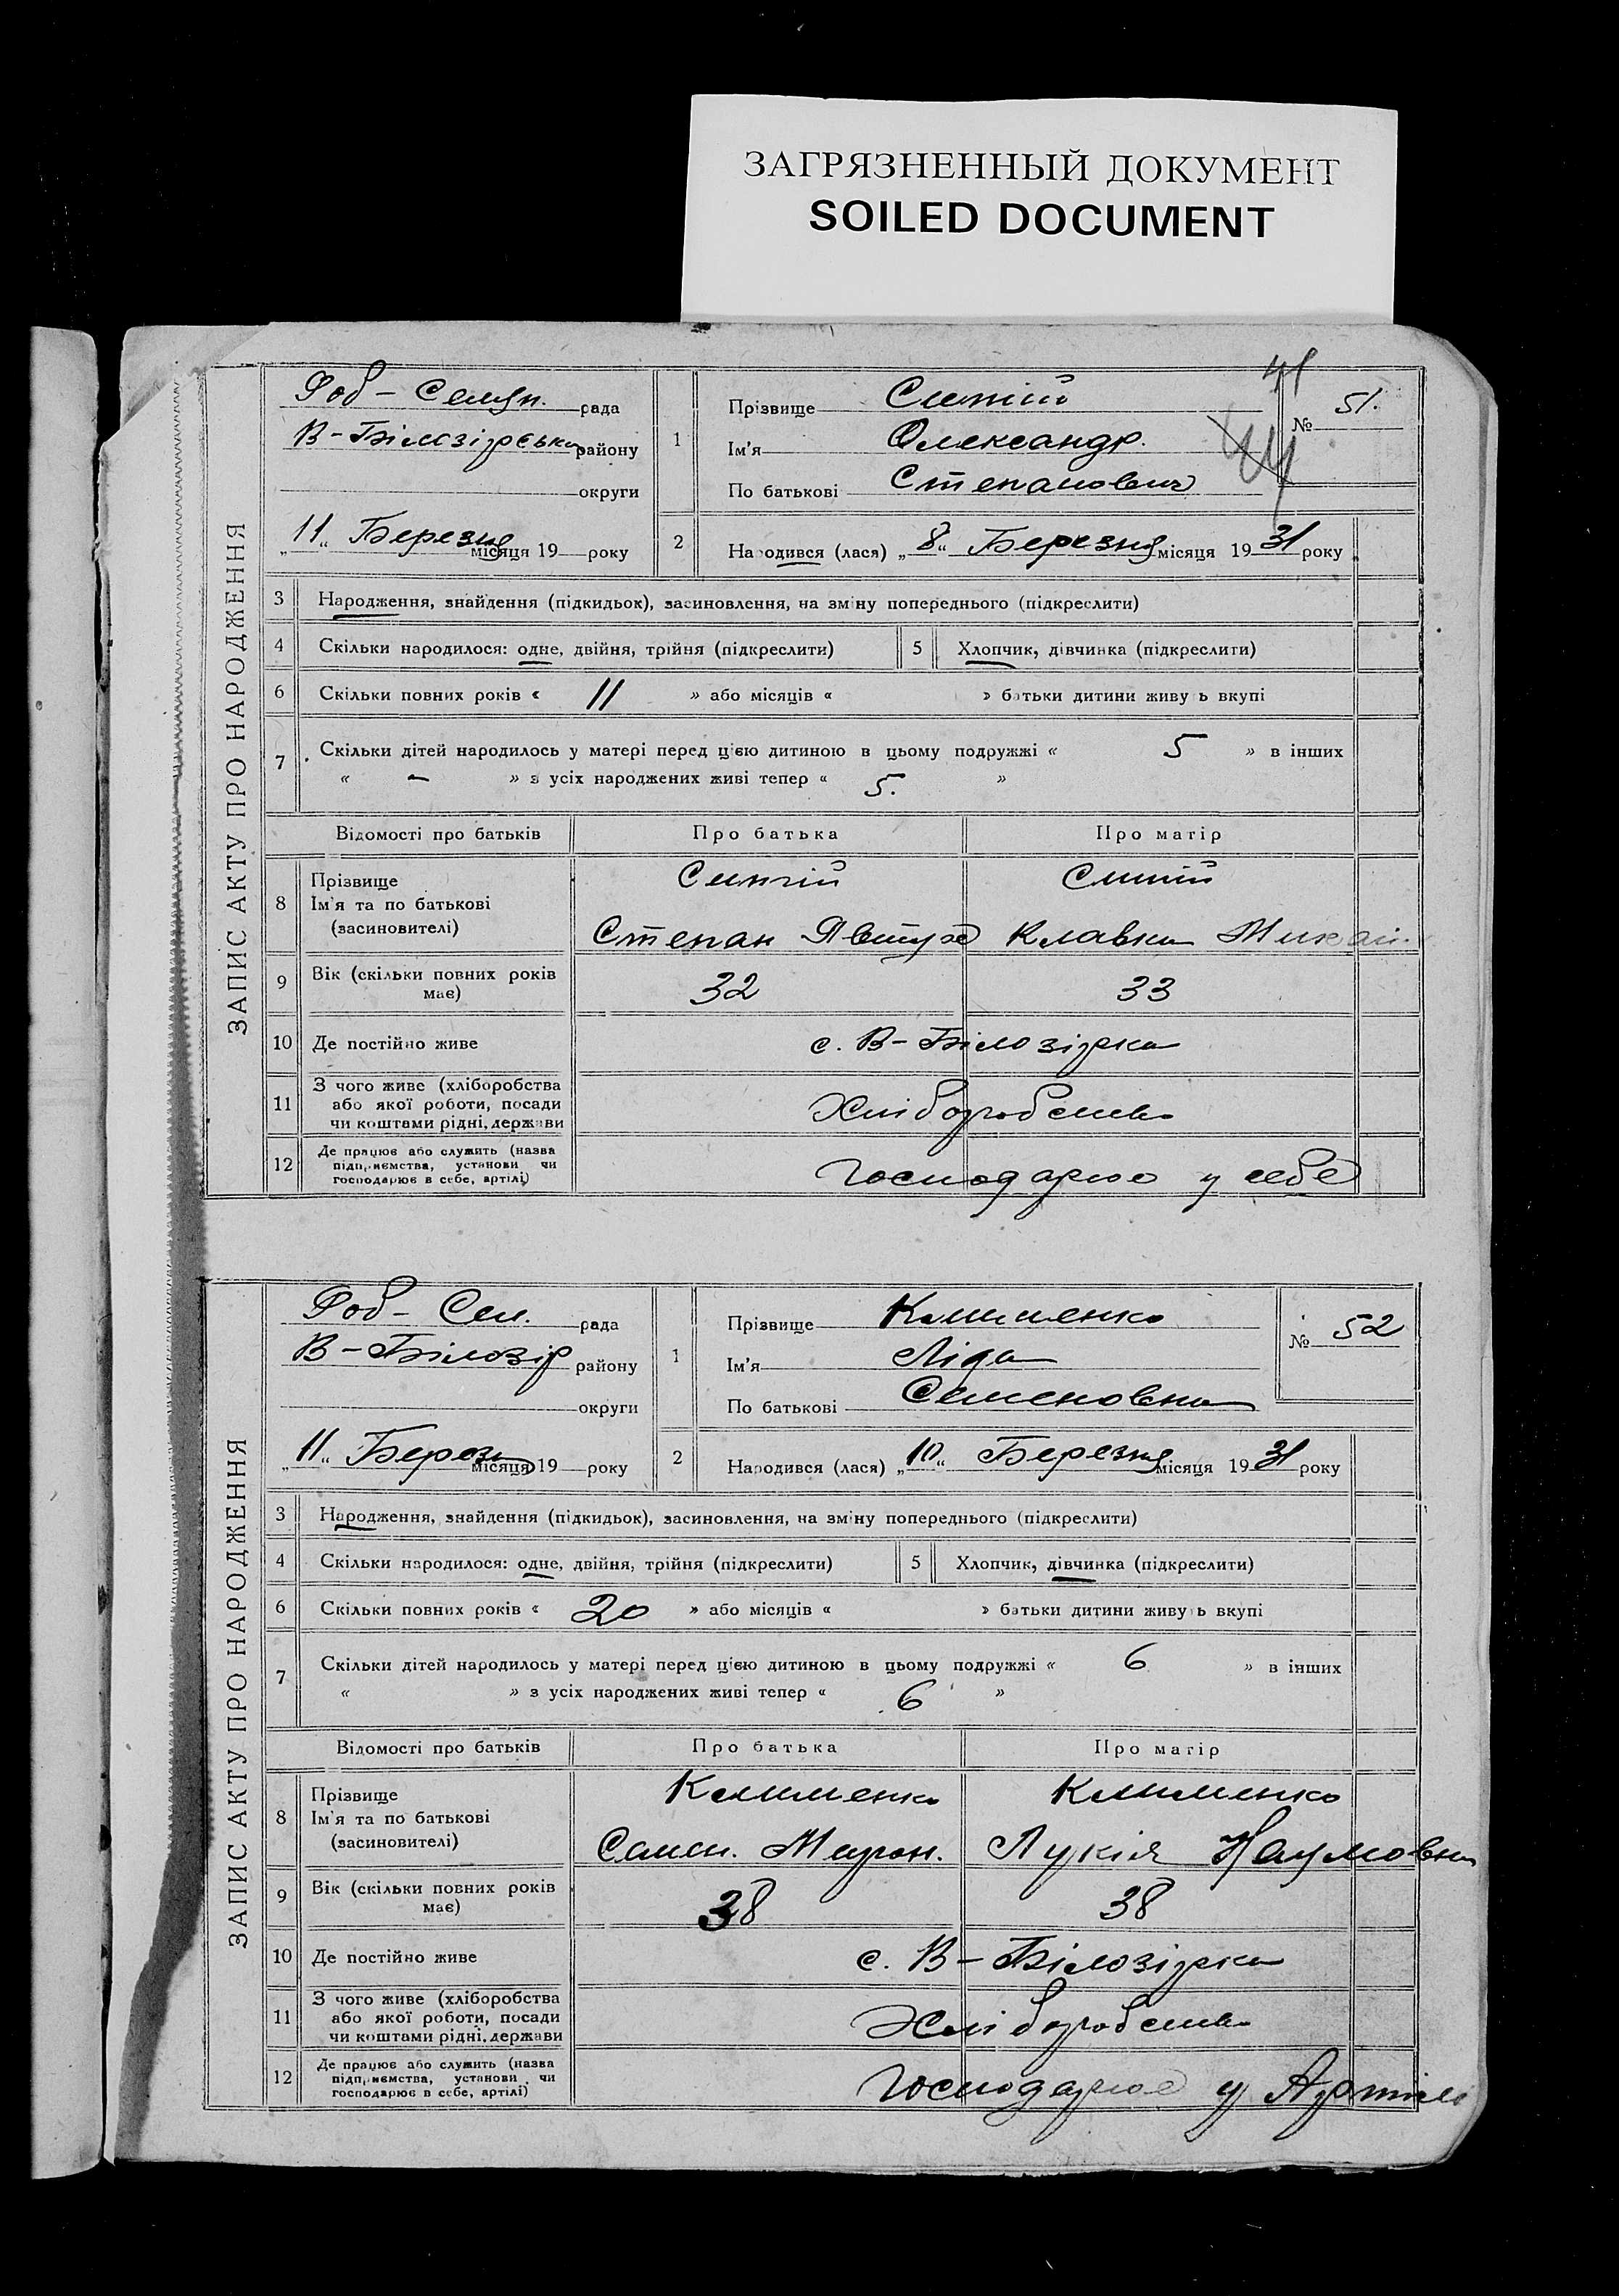 ЗАГРЯЗНЕННЫЙ ДОКУМЕНТ
SOILED DOCUMENT
ЗАПИС АКТУ ПРО НАРОДЖЕННЯ
рада
В-Білозірська району
округи
„11“ Березня місяця 19 року
1
Прізвище
Ім'я Олександр.
По батькові Степанович
№ 51.
2
Народився (лася) „8“ Березня місяця 1931 року
3 Народження, знайдення (підкидьок), засиновлення, на зміну попереднього (підкреслити)
4 Скільки народилося: одне, двійня, трійня (підкреслити)
5 Хлопчик, дівчинка (підкреслити)
6 Скільки повних років « 11 » або місяців « » батьки дитини живуть вкупі
7 Скільки дітей народилось у матері перед цією дитиною в цьому подружжі « 5 » в інших
« - » з усіх народжених живі тепер « 5. »
Відомості про батьків Про батька Про матір
8 Прізвище
Ім'я та по батькові
(засиновителі)
Степан Явтух Клавка Михай.
9 Вік (скільки повних років
має)
32 33
10 Де постійно живе с. В-Білозірка
11 З чого живе (хліборобства
або якої роботи, посади
чи коштами рідні, держави
Хліборобство
12 Де працює або служить (назва
підприємства, установи чи
господарює в себе, артілі)
Господарює у себе
ЗАПИС АКТУ ПРО НАРОДЖЕННЯ
рада
В-Білозір району
округи
„11“ місяця 19 року
1
Прізвище Клименко
Ім'я Ліда
По батькові Семеновна
№ 52
2
Народився (лася) „10“ Березня місяця 1931 року
3 Народження, знайдення (підкидьок), засиновлення, на зміну попереднього (підкреслити)
4 Скільки народилося: одне, двійня, трійня (підкреслити)
5 Хлопчик, дівчинка (підкреслити)
6 Скільки повних років « 20 » або місяців « » батьки дитини живуть вкупі
7 Скільки дітей народилось у матері перед цією дитиною в цьому подружжі « 6 » в інших
« » з усіх народжених живі тепер « 6 »
Відомості про батьків Про батька Про матір
8 Прізвище
Ім'я та по батькові
(засиновителі)
Клименко Клименко
Семен. Мирон. Лукія Наумовна
9 Вік (скільки повних років
має)
38 38
10 Де постійно живе с. В-Білозірка
11 З чого живе (хліборобства
або якої роботи, посади
чи коштами рідні, держави
Хліборобство
12 Де працює або служить (назва
підприємства, установи чи
господарює в себе, артілі)
Господарює у Артілі